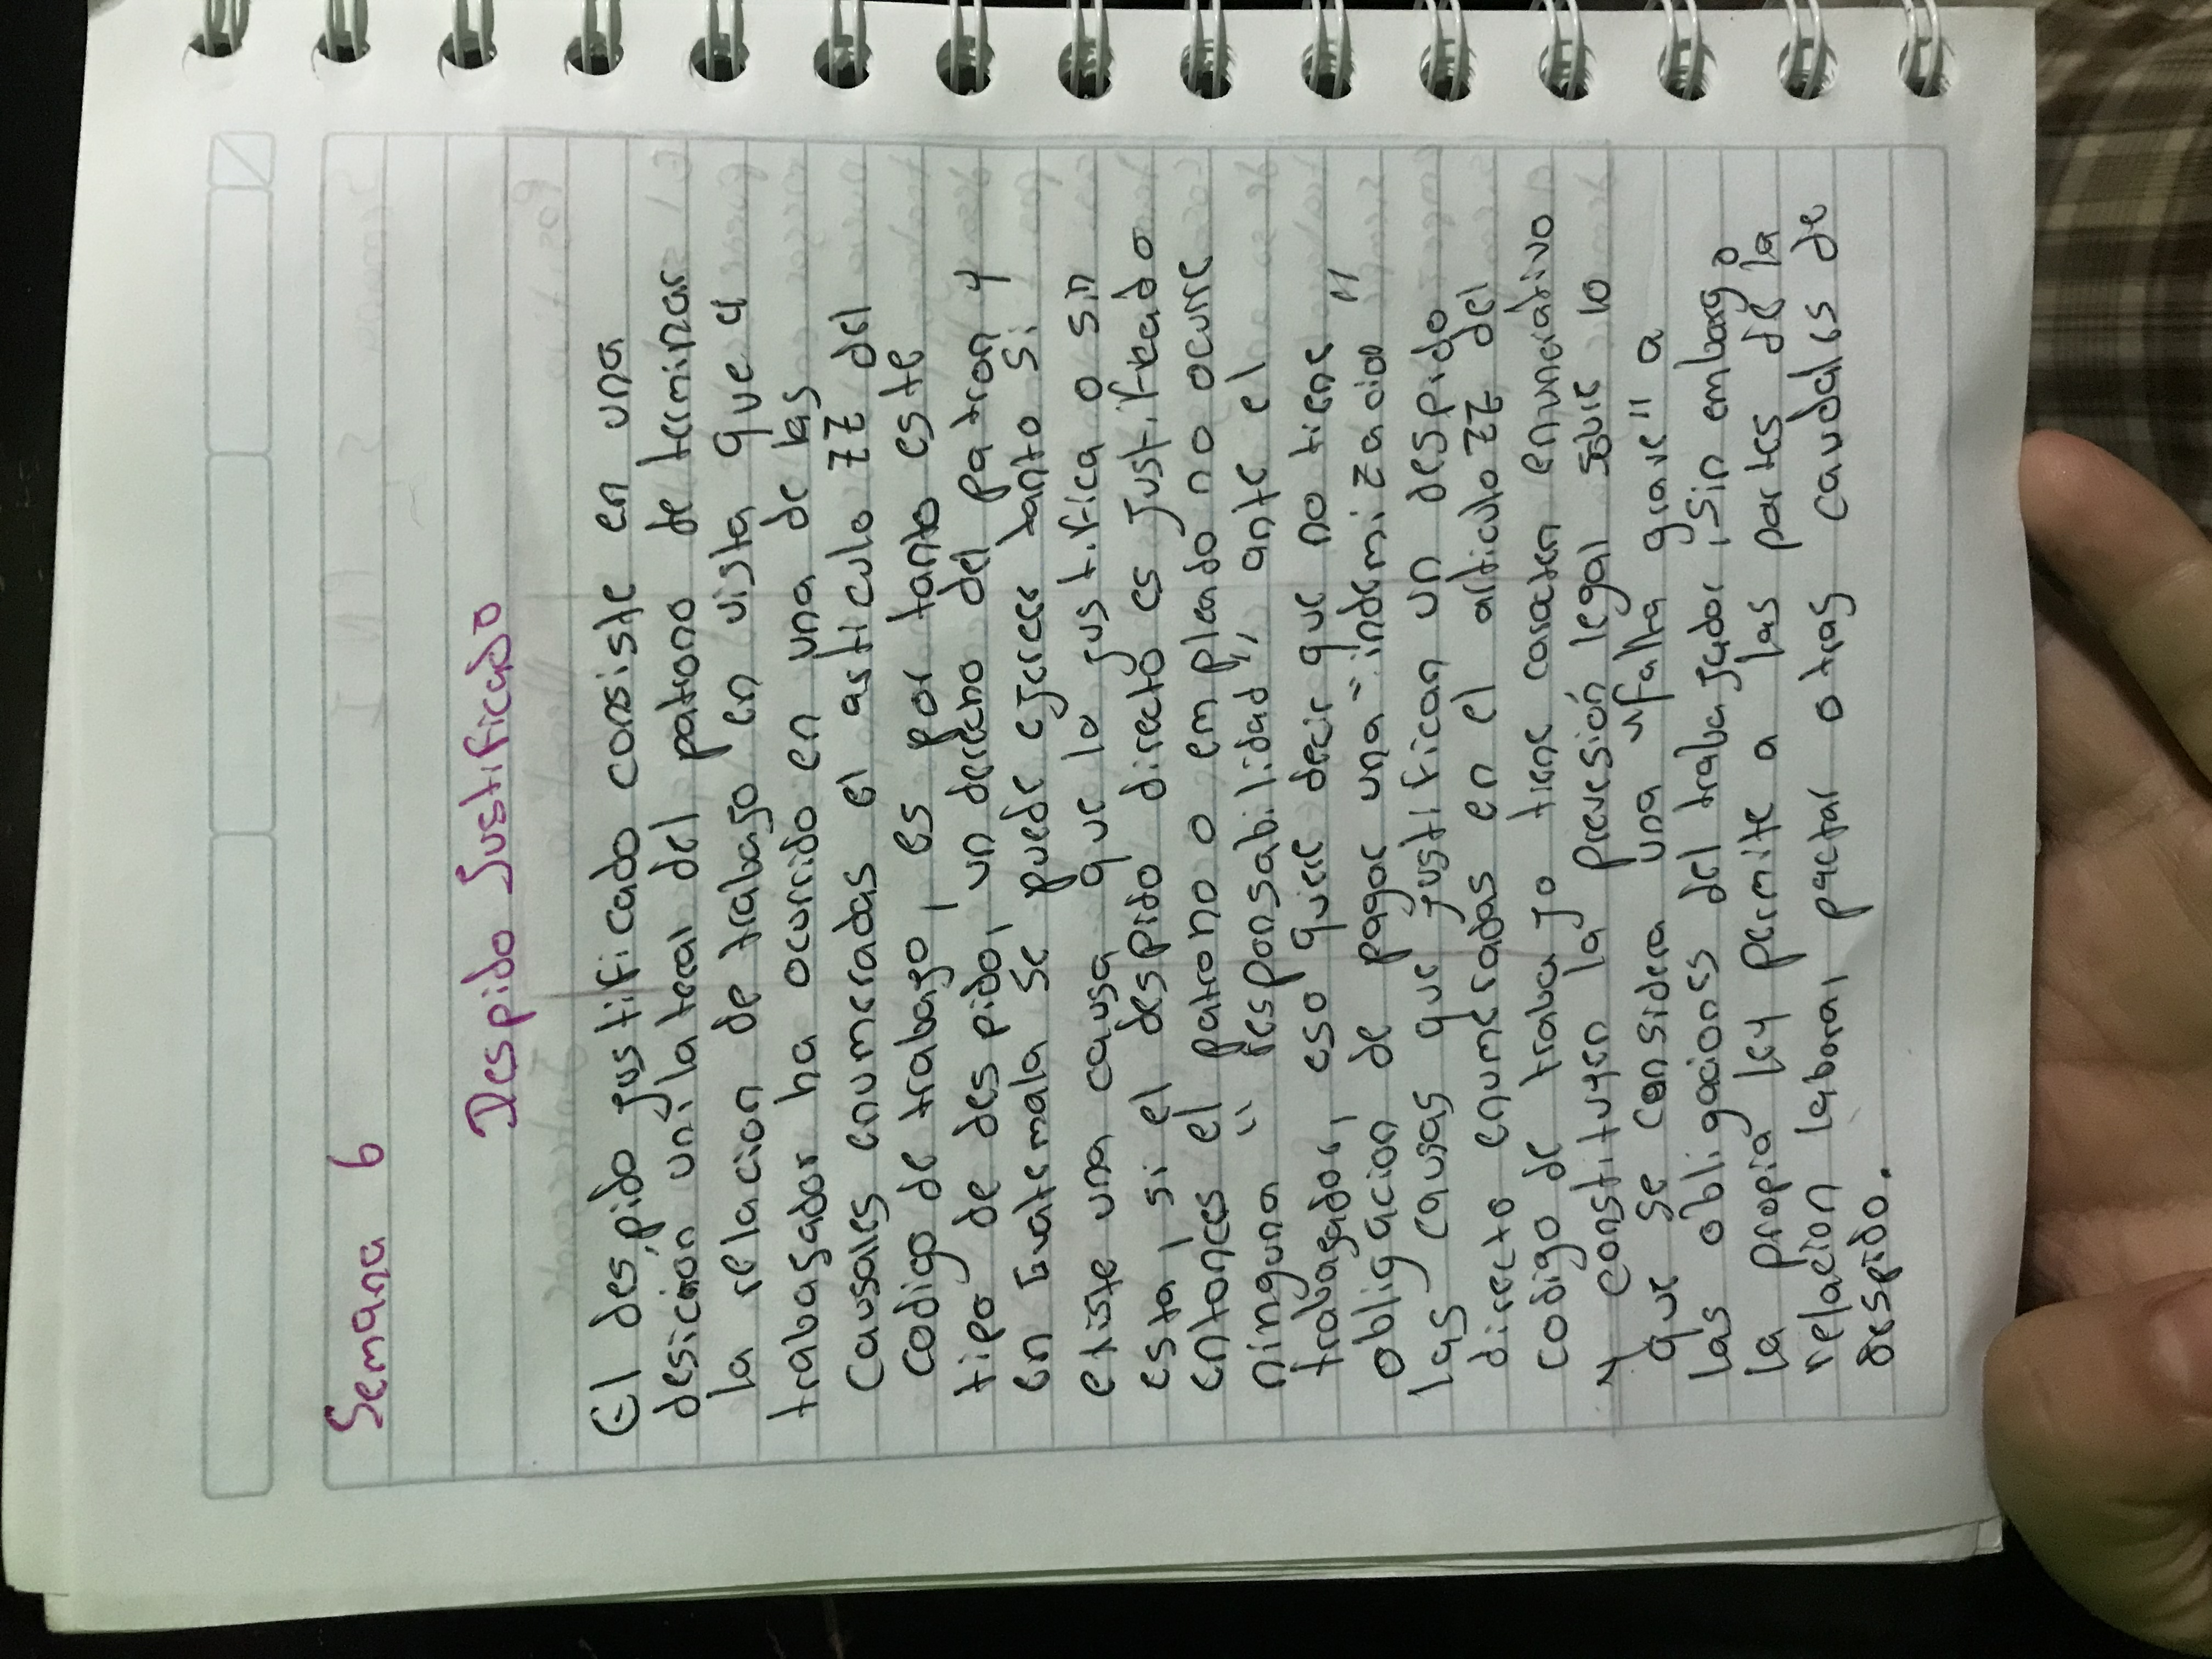 Semana 6
Despido Justificado
El despido justificado consiste en una
desicion unilateral del patrono de terminar
la relacion de trabajo en vista que el
trabajador ha ocurrido en una de las
causales enumeradas el articulo 77 del
codigo de trabajo, es por tanto este
tipo de despido, un derecho del patron y
en Guatemala se puede ejercer tanto si
existe una causa que lo justifica o sin
esta, si el despido directo es justificado
entonces el patrono o empleado no ocurre
ninguna "responsabilidad", ante el
trabajador, eso quiere decir que no tiene
obligacion de pagar una "indemnizacion"
las causas que justifican un despido
directo enumeradas en el articulo 77 del
codigo de trabajo tiene caracter enunerativo
y constituyen la previsión legal sobre lo
que se considera una "falta grave" a
las obligaciones del trabajador, sin embargo
la propia ley permite a las partes de la
relacion laboral pactar otras caudales de
despido.